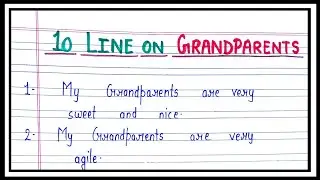 10 LINE ON GRANDPARENTS
1- My Grandparents are very
sweet and nice.
2- My Grandparents are very
agile.